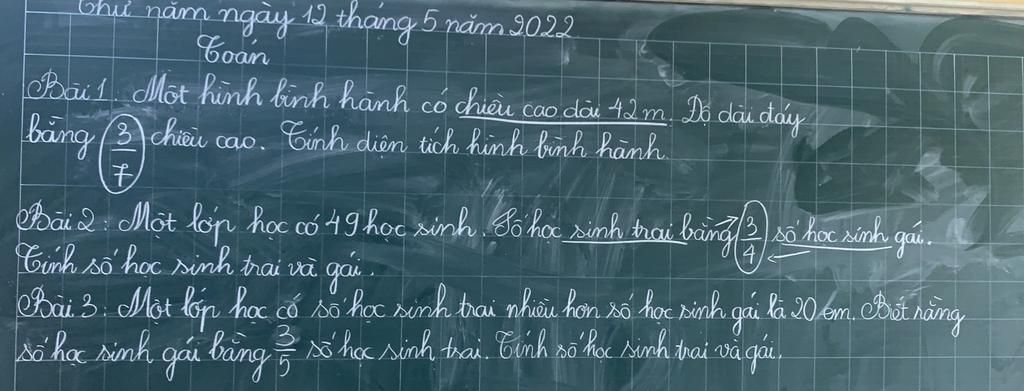 Thứ năm ngày 12 tháng 5 năm 2022
Toán
Bài 1 Một hình bình hành có chiều cao dài 42 m. Độ dài đáy
bằng 3/7 chiều cao. Tính diện tích hình bình hành
Bài 2: Một lớp học có 49 học sinh. Số học sinh trai bằng 3/4 số học sinh gái.
Tính số học sinh trai và gái.
Bài 3: Một lớp học có số học sinh trai nhiều hơn số học sinh gái là 20 em. Biết rằng
số học sinh gái bằng 3/5 số học sinh trai. Tính số học sinh trai và gái.